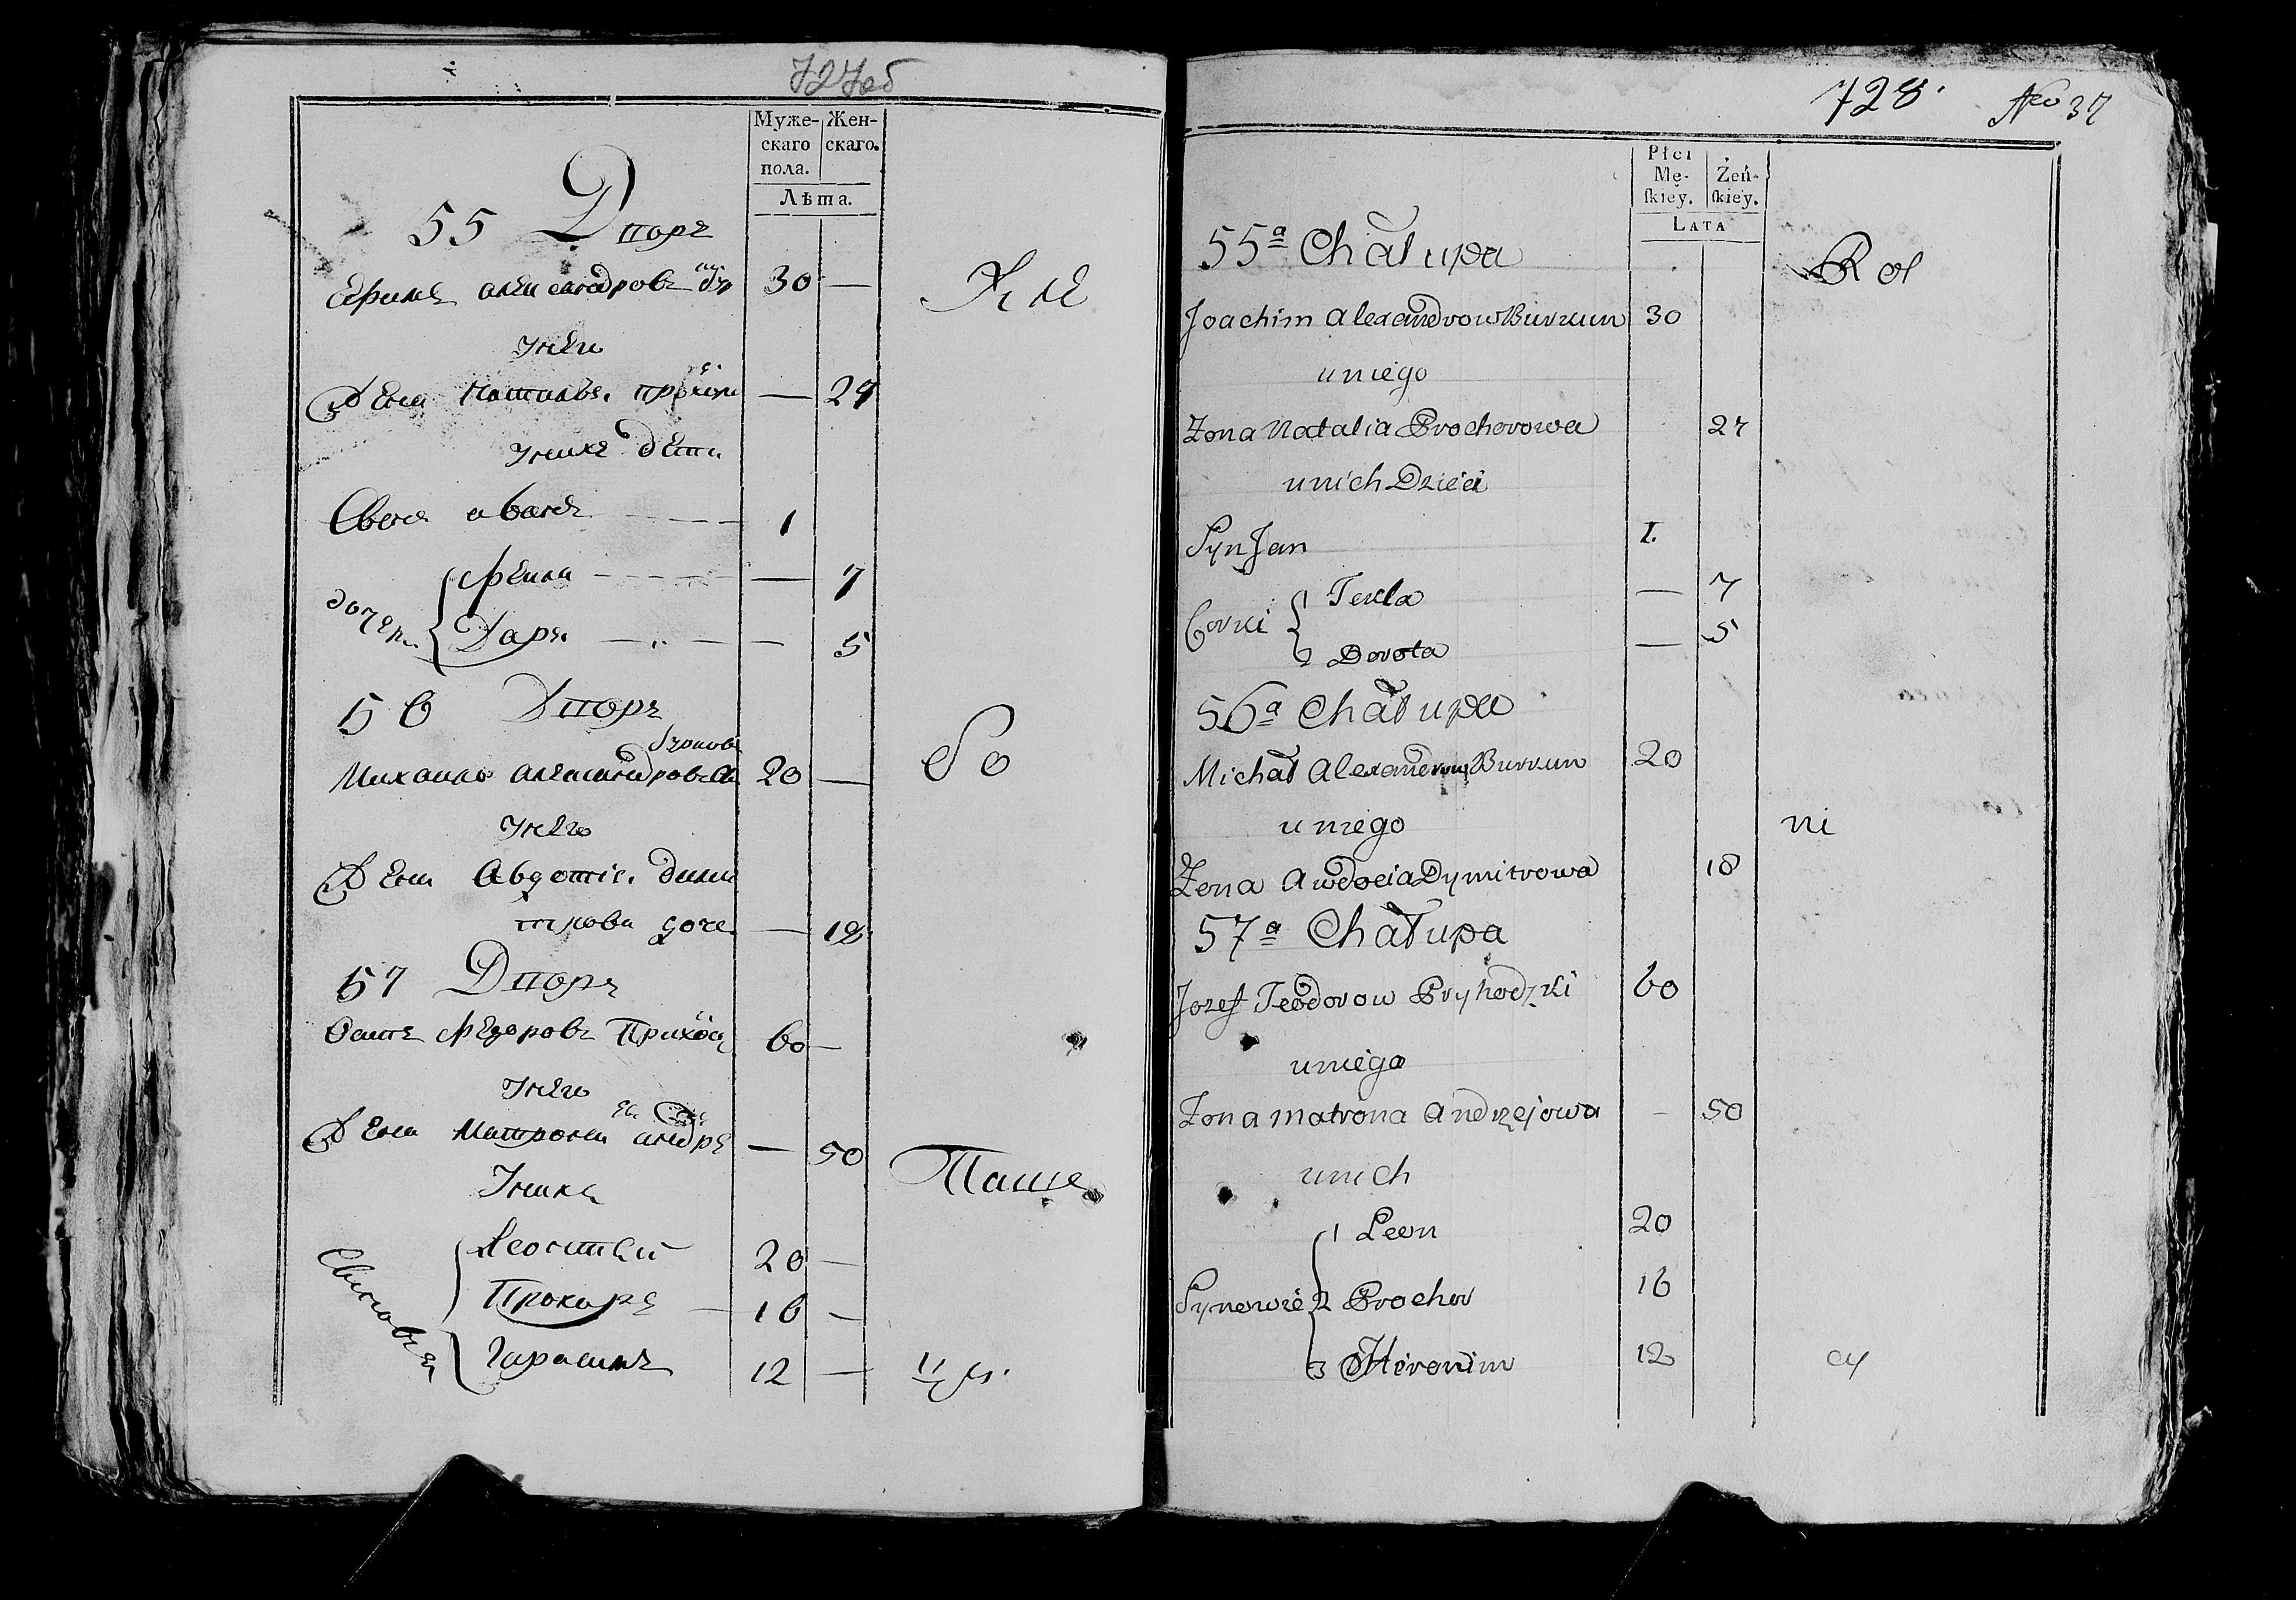 727об
Муже- Жен-
скаго скаго.
пола.
Лѣта.
55 Дворъ
Ефимъ Александровъ 30 —
Хлѣ
у него
Жена Наталья Прохоро — 27
у нихъ дѣти
Сынъ Иванъ 1
дочери Фекла — 7
Дарья — 5
56 Дворъ
Михайло Александровъ 20 —
бо
у него
Жена Авдотія Дими
трова доче — 18
57 Дворъ
Осипъ Федоровъ Приход 60 —
у него
Жена Матрона Андре — 50
Паше
у нихъ
Сыновья Леонтей 20 —
Прохоръ 16 —
Гарасимъ 12 —
728. No 37
Płci
Mę- Żeń-
skiey. skiey.
LATA
55a Chałupa
Rol
Joachim Alexandrow Burkun 30
u niego
Zona Natalia Prochorowa 27
u nich Dzieci
Syn Jan 1.
Corki 1 Tekla — 7
2 Dorota — 5
56a Chałupa
Michał Alexandrow Burkun 20
u niego
ni
Zona Awdocia Dymitrowa 18
57a Chałupa
Jozef Teodorow Pryhodzki 60
u niego
Zona Matrona Andrzejowa - 50
u nich
Synowie 1 Leon 20
2 Prochor 16
3 Hieronim 12
cy